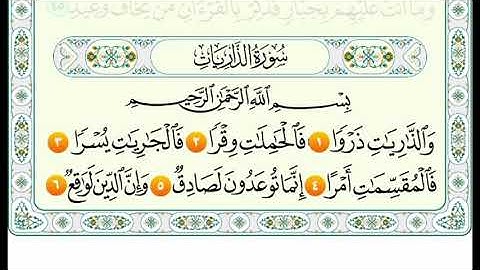 وما أنت عليهم بجبار فذكر بالقرءان من يخاف وعيد ٤٥
سُورَةُ الذَّارِيَاتِ
بِسْمِ اللَّهِ الرَّحْمَٰنِ الرَّحِيمِ
وَٱلذَّٰرِيَٰتِ ذَرْوًا ١ فَٱلْحَٰمِلَٰتِ وِقْرًا ٢ فَٱلْجَٰرِيَٰتِ يُسْرًا ٣
فَٱلْمُقَسِّمَٰتِ أَمْرًا ٤ إِنَّمَا تُوعَدُونَ لَصَادِقٌ ٥ وَإِنَّ ٱلدِّينَ لَوَٰقِعٌ ٦